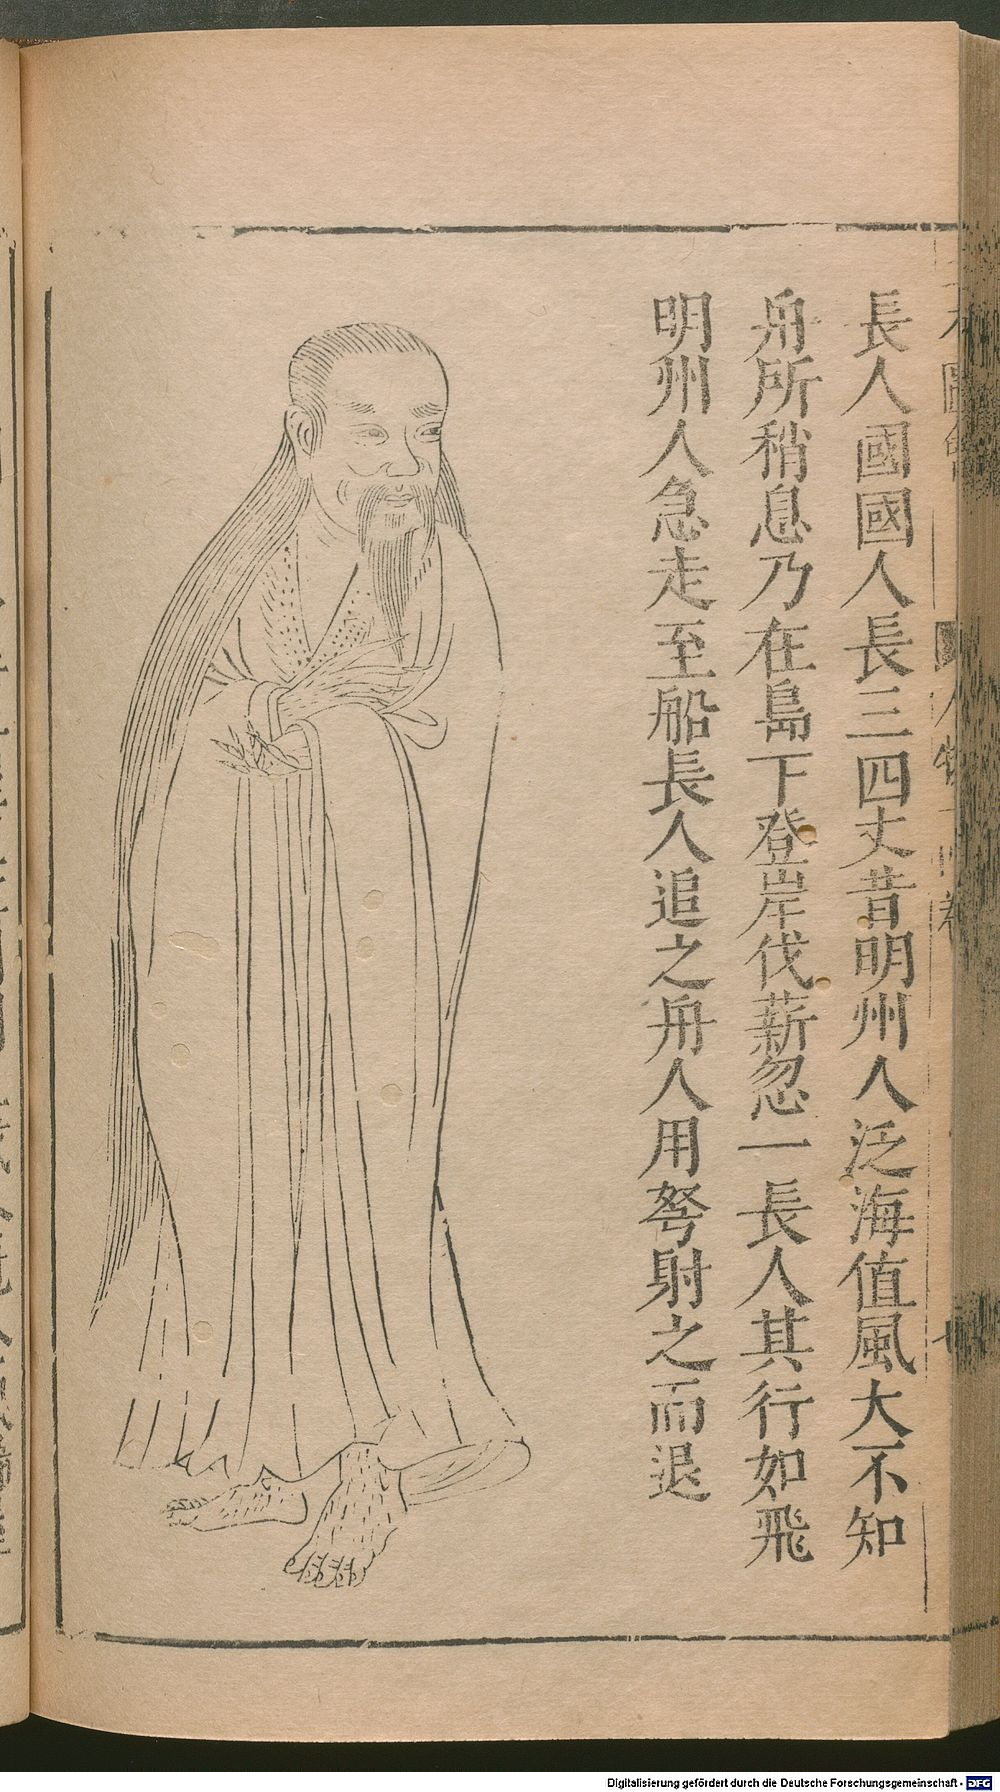 長人國國人長三四丈昔明州人泛海值風大不知
舟所稍息乃在島下登岸伐薪忽一長人其行如飛
明州人急走至船長人追之舟人用弩射之而退
Digitalisierung gefördert durch die Deutsche Forschungsgemeinschaft - DFG